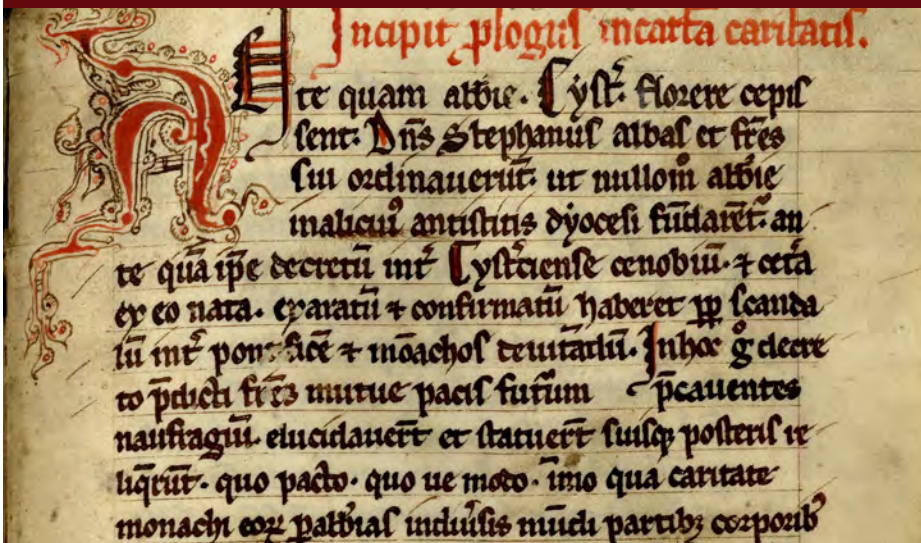 Incipit ꝓlogus in carta caritatis.
Ante quam abbie. Cyst̄. florere cepis
sent. Dn̄s Stephanus abbas et fr̄es
sui ordinauerūt. ut nullom̊ abbie
in alicuiꝰ antistitis dyocesi fūdarēt᷑. an
te quā ip̄e decretū int̄ Cyst̄ciense cenobiū. ⁊ cet̄a
ex eo nata. exaratū ⁊ confirmatū haberet ꝓpt̄ scanda
lū int̄ pontificē ⁊ mōachos deuitādū. In hoc gͦ decre
to p̄dicti fr̄es mutue pacis futūrum p̄cauentes
naufragiū. elucidauer̄t et statuer̄t suisqꝫ posteris re
liq̄rūt. quo pacto. quo ue modo. imo qua caritate
monachi eoꝝ ꝑ abbias in diuisis mūdi partibꝫ corporibꝰ